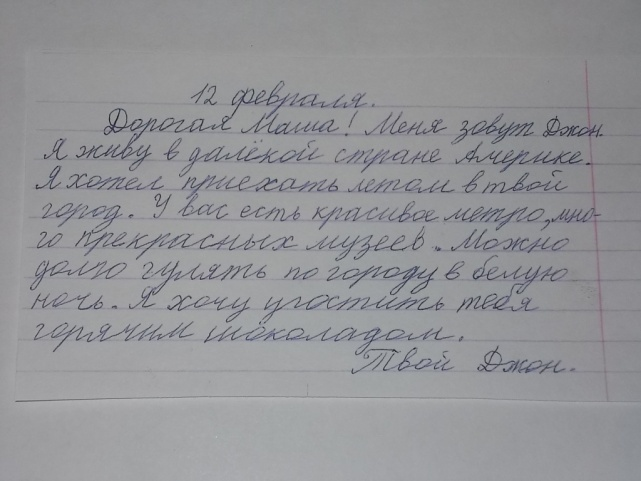 12 февраля.
Дорогая Маша! Меня зовут Джон.
Я живу в далёкой стране Америке.
Я хотел приехать летом в твой
город. У вас есть красивое метро, мно-
го прекрасных музеев. Можно
долго гулять по городу в белую
ночь. Я хочу угостить тебя
горячим шоколадом.
Твой Джон.